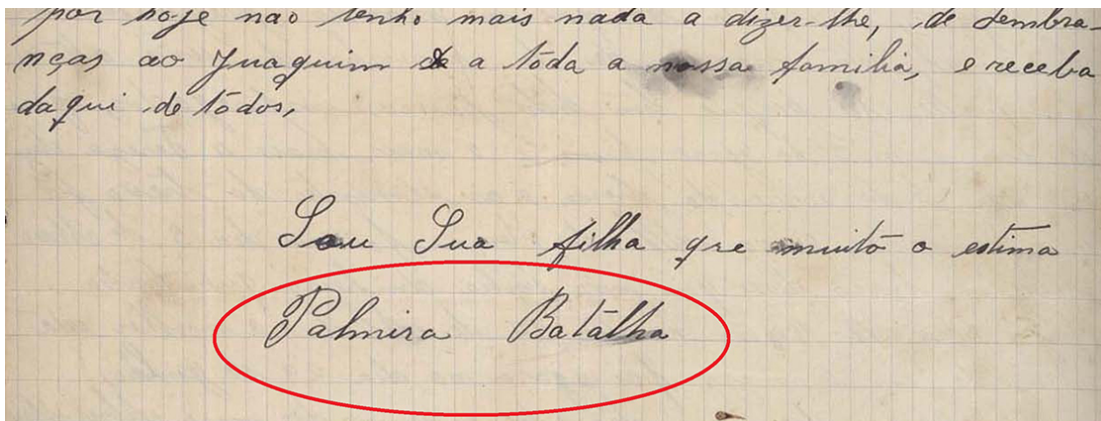 por hoje nao tenho mais nada a dizer-lhe, de Lembra-
nças ao Juaquim e a tôda a nossa familia, e receba
daqui de tôdos,
Sou Sua filha que muito o estima
Palmira Batálha